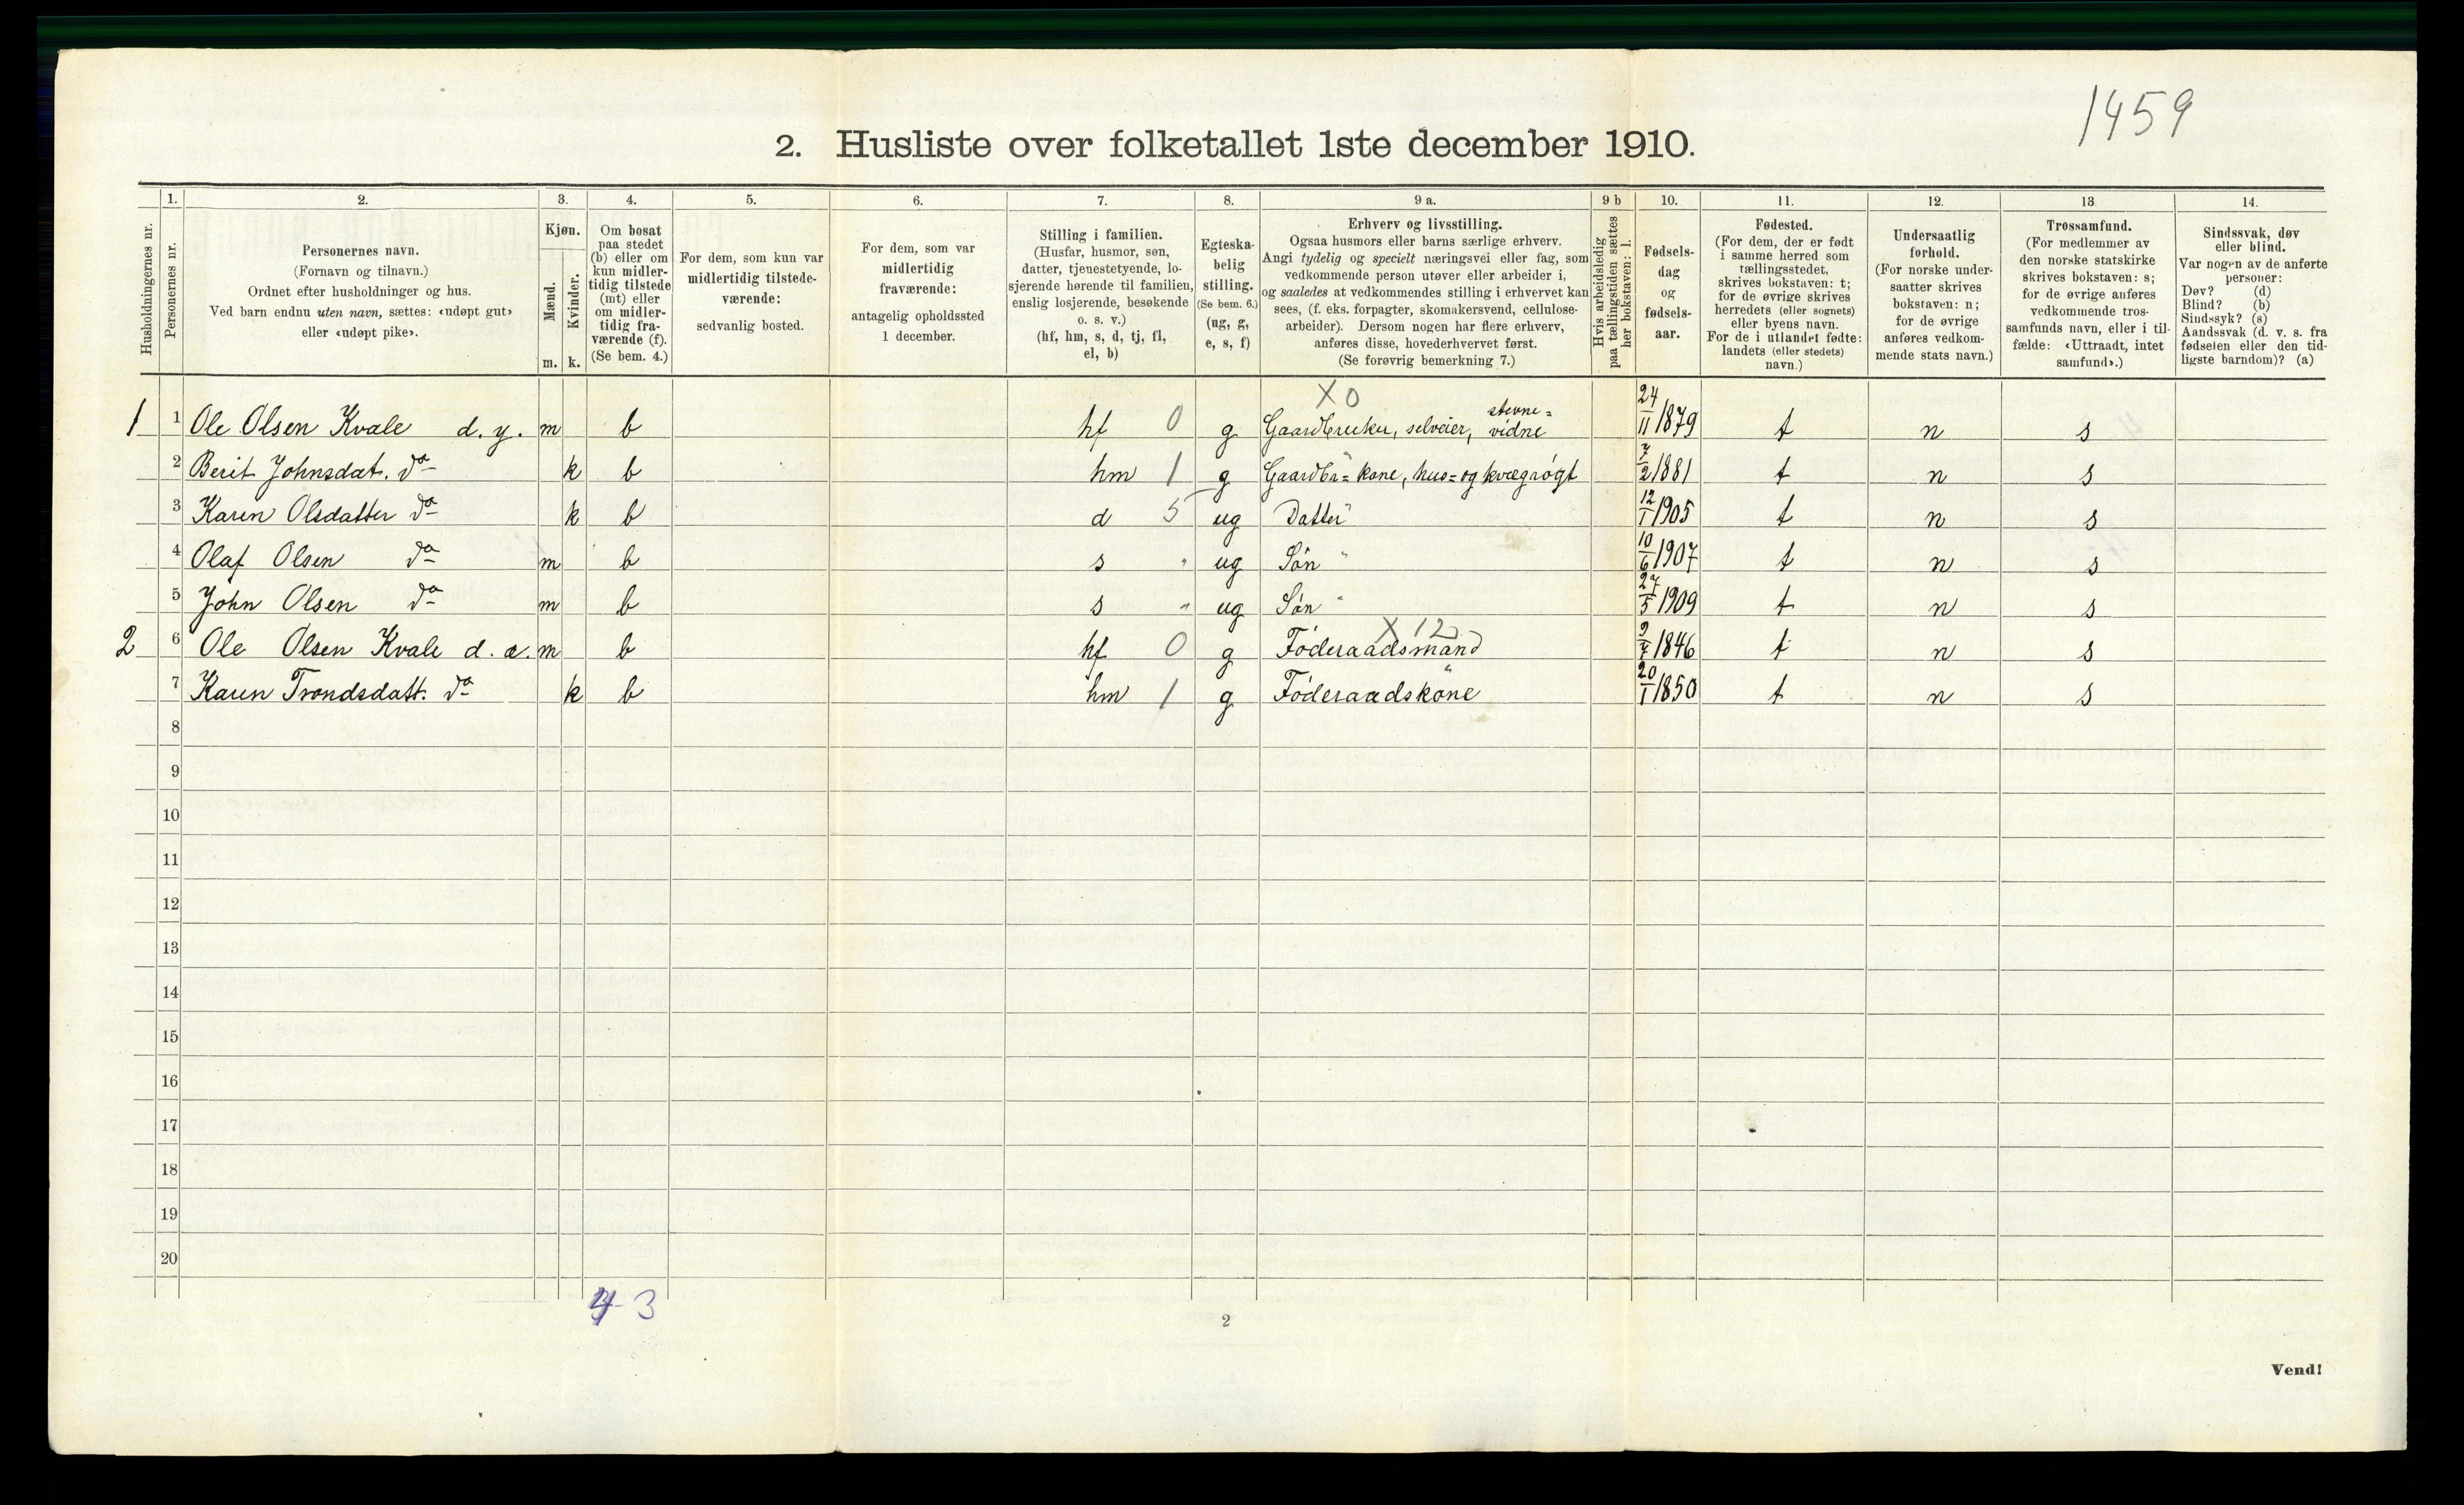 1459
2. Husliste over folketallet 1ste december 1910.
Husholdningernes nr.
1.
Personernes nr.
2.
Personernes navn.
(Fornavn og tilnavn.)
Ordnet efter husholdninger og hus.
Ved barn endnu uten navn, sættes: «udøpt gut»
eller «udøpt pike».
3.
Kjøn.
Mænd.
Kvinder.
m. k.
4.
Om bosat
paa stedet
(b) eller om
kun midler-
tidig tilstede
(mt) eller
om midler-
tidig fra-
værende (f).
(Se bem. 4.)
5.
For dem, som kun var
midlertidig tilstede-
værende:
sedvanlig bosted.
6.
For dem, som var
midlertidig
fraværende:
antagelig opholdssted
1 december.
7.
Stilling i familien.
(Husfar, husmor, søn,
datter, tjenestetyende, lo-
sjerende hørende til familien,
enslig losjerende, besøkende
o. s. v.)
(hf, hm, s, d, tj, fl,
el, b)
8.
Egteska-
belig
stilling.
(Se bem. 6.)
(ug, g,
e, s, f)
9 a.
Erhverv og livsstilling.
Ogsaa husmors eller barns særlige erhverv.
Angi tydelig og specielt næringsvei eller fag, som
vedkommende person utøver eller arbeider i,
og saaledes at vedkommendes stilling i erhvervet kan
sees, (f. eks. forpagter, skomakersvend, cellulose-
arbeider). Dersom nogen har flere erhverv,
anføres disse, hovederhvervet først.
(Se forøvrig bemerkning 7.)
9 b
Hvis arbeidsledig
paa tællingstiden sættes
her bokstaven: l.
10.
Fødsels-
dag
og
fødsels-
aar.
11.
Fødested.
(For dem, der er født
i samme herred som
tællingsstedet,
skrives bokstaven: t;
for de øvrige skrives
herredets (eller sognets)
eller byens navn.
For de i utlandet fødte:
landets (eller stedets)
navn.)
12.
Undersaatlig
forhold.
(For norske under-
saatter skrives
bokstaven: n;
for de øvrige
anføres vedkom-
mende stats navn.)
13.
Trossamfund.
(For medlemmer av
den norske statskirke
skrives bokstaven: s;
for de øvrige anføres
vedkommende tros-
samfunds navn, eller i til-
fælde: «Uttraadt, intet
samfund».)
14.
Sindssvak, døv
eller blind.
Var nogen av de anførte
personer:
Døv? (d)
Blind? (b)
Sindssyk? (s)
Aandssvak (d. v. s. fra
fødselen eller den tid-
ligste barndom)? (a)
X 0
1 1 Ole Olsen Kvale d. y. m b hf 0 g Gaardbruker, selveier, stevne= vidne 24/11 1879 t n s
2 Berit Johnsdat. do k b hm 1 g Gaardbr= kone, hus= og kvægrögt 7/2 1881 t n s
3 Karen Olsdatter do k b d 5 ug Datter " 12/1 1905 t n s
4 Olaf Olsen do m b s " ug Sön " 10/6 1907 t n s
5 John Olsen do m b s " ug Sön " 27/5 1909 t n s
X 12
2 6 Ole Olsen Kvale d. æ. m b hf 0 g Föderaadsmand 9/7 1846 t n s
7 Karen Trondsdatt. do k b hm 1 g Föderaadskone 20/1 1850 t n s
8
9
10
11
12
13
14
15
16
17
18
19
20
4-3
2
Vend!